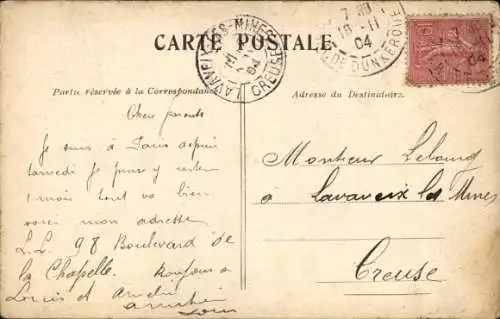 CARTE POSTALE
LAVAVEIX-LES-MINES
CREUSE
04
7 30
16 -11
04
DE DUNKERQUE
10
Partie réservée à la Correspondance
Adresse du Destinataire.
Chers parents
Je suis à Paris depuis
samedi Je pense y rester
1 mois tout va bien
voici mon adresse
L.L. 98 Boulevard de
la Chapelle. Bonjour à
Louis et Amélie
Louis
Monsieur
à Lavaveix les Mines
Creuse